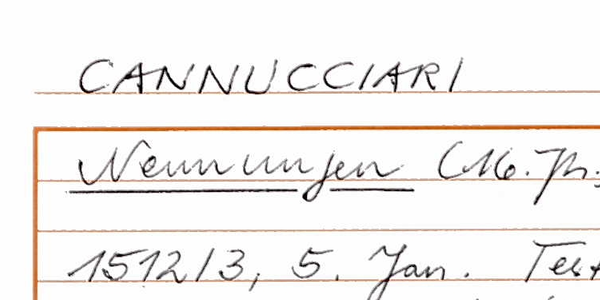 CANNUCCIARI
Nennungen (Mb. Th.
1512/3, 5. Jan. Test